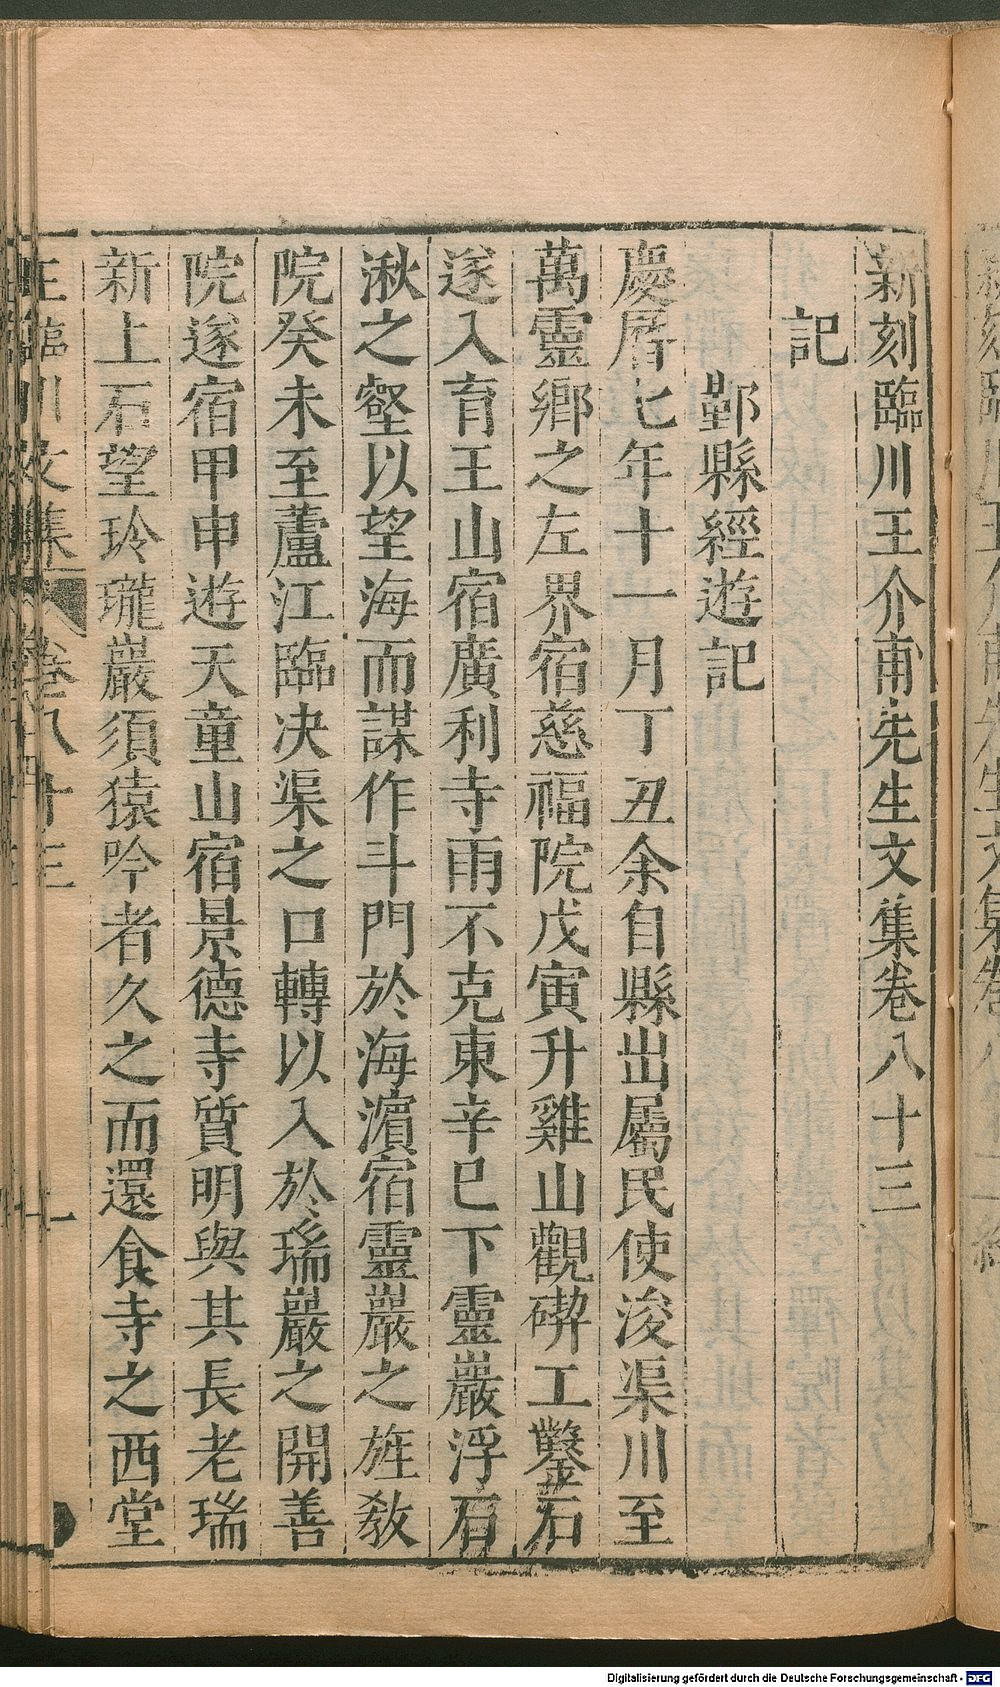 新刻臨川王介甫先生文集卷八十三
記
鄞縣經遊記
慶曆七年十一月丁丑余自縣出屬民使浚渠川至
萬靈鄉之左界宿慈福院戊寅升雞山觀碶工鑿石
遂入育王山宿廣利寺雨不克東辛巳下靈巖浮石
湫之壑以望海而謀作斗門於海濵宿靈巖之旌教
院癸未至蘆江臨决渠之口轉以入於瑞巖之開善
院遂宿甲申遊天童山宿景德寺質明與其長老瑞
新上石望玲瓏巖須猿吟者久之而還食寺之西堂
王臨川文集 卷八十三 一
Digitalisierung gefördert durch die Deutsche Forschungsgemeinschaft - DFG